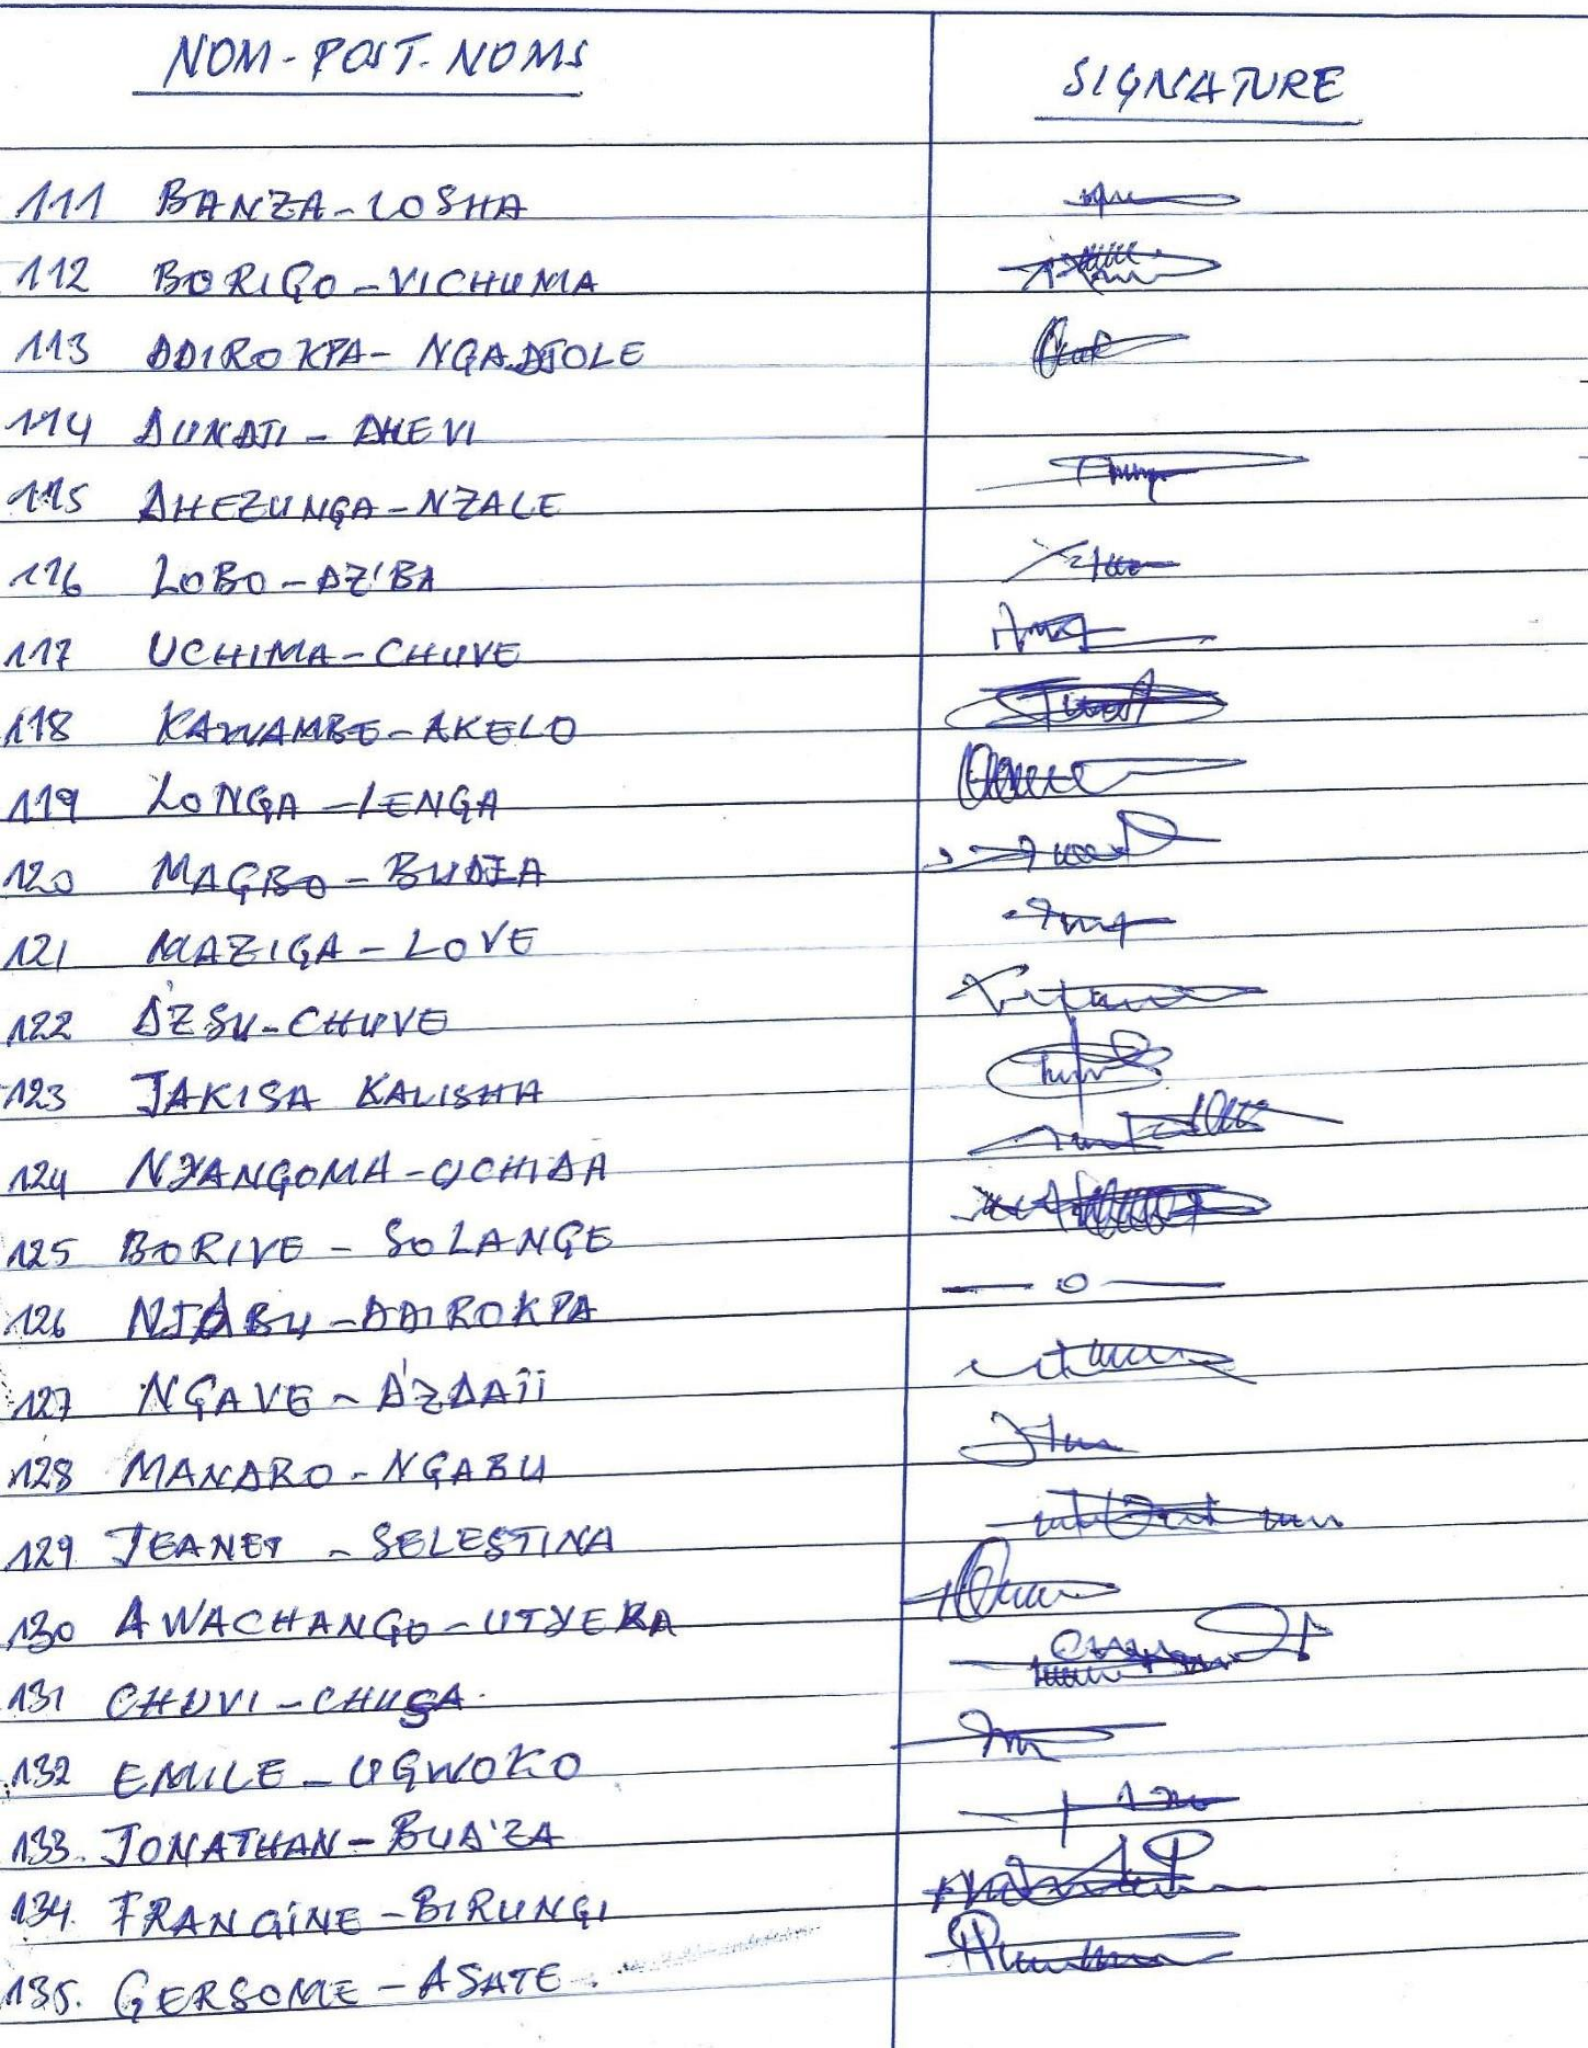 NOM-POST-NOMS SIGNATURE
111 BANZA-LOSHA
112 BORIGO-VICHUMA
113 ADIROKPA-NGADJOLE
114 AUNATI-AHEVI
115 AHEZUNGA-NZALE
116 LOBO-AZ'BA
117 UCHIMA-CHUVE
118 KAWAMBE-AKELO
119 LONGA-LENGA
120 MAGBO-BUDZA
121 MAZIGA-LOVE
122 A'ZSU-CHUVE
123 JAKISA KALISHA
124 NYANGOMA-UCHIDA
125 BORIVE-SOLANGE
126 NJABU-ADIROKPA
127 NGAVE-A'ZDAII
128 MANDRO-NGABU
129 JEANET-SELESTINA
130 AWACHANGO-UTYERA
131 CHUVI-CHUSA
132 EMILE-UGWOKO
133. JONATHAN-BUA'ZA
134. FRANGINE-BIRUNGI
135. GERSOME-ASATE.